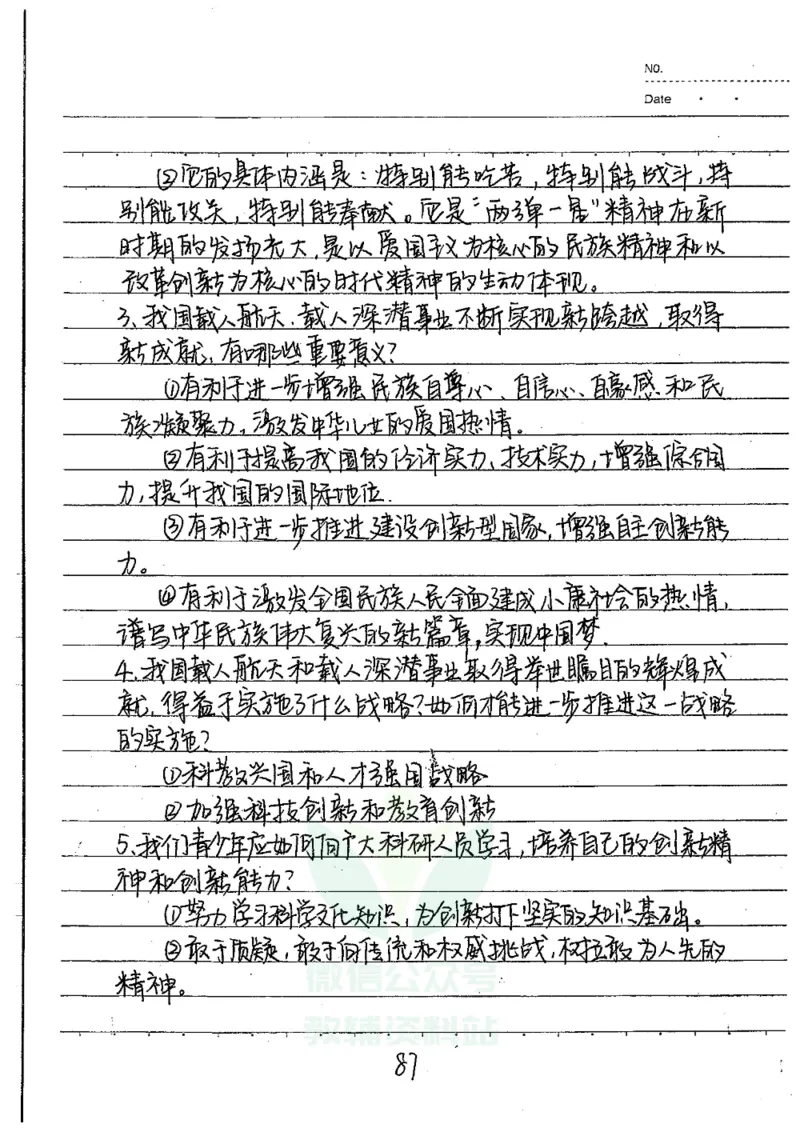 NO.
Date
②它的具体内涵是：特别能吃苦，特别能战斗，特
别能攻关，特别能奉献。它是“两弹一星”精神在新
时期的发扬光大，是以爱国主义为核心的民族精神和以
改革创新为核心的时代精神的生动体现。
3、我国载人航天、载人深潜事业不断实现新跨越，取得
新成就，有哪些重要意义？
①有利于进一步增强民族自尊心、自信心、自豪感和民
族凝聚力，激发中华儿女的爱国热情。
②有利于提高我国的经济实力、技术实力，增强综合国
力，提升我国的国际地位.
③有利于进一步推进建设创新型国家，增强自主创新能
力。
④有利于激发全国民族人民全面建成小康社会的热情，
谱写中华民族伟大复兴的新篇章，实现中国梦.
4、我国载人航天和载人深潜事业取得举世瞩目的辉煌成
就，得益于实施了什么战略？如何才能进一步推进这一战略
的实施？
①科教兴国和人才强国战略
②加强科技创新和教育创新
5、我们青少年应如何向广大科研人员学习，培养自己的创新精
神和创新能力？
①努力学习科学文化知识，为创新打下坚实的知识基础。
②敢于质疑，敢于向传统和权威挑战，权拉敢为人先的
精神。
微信公众号
教辅资料站
87